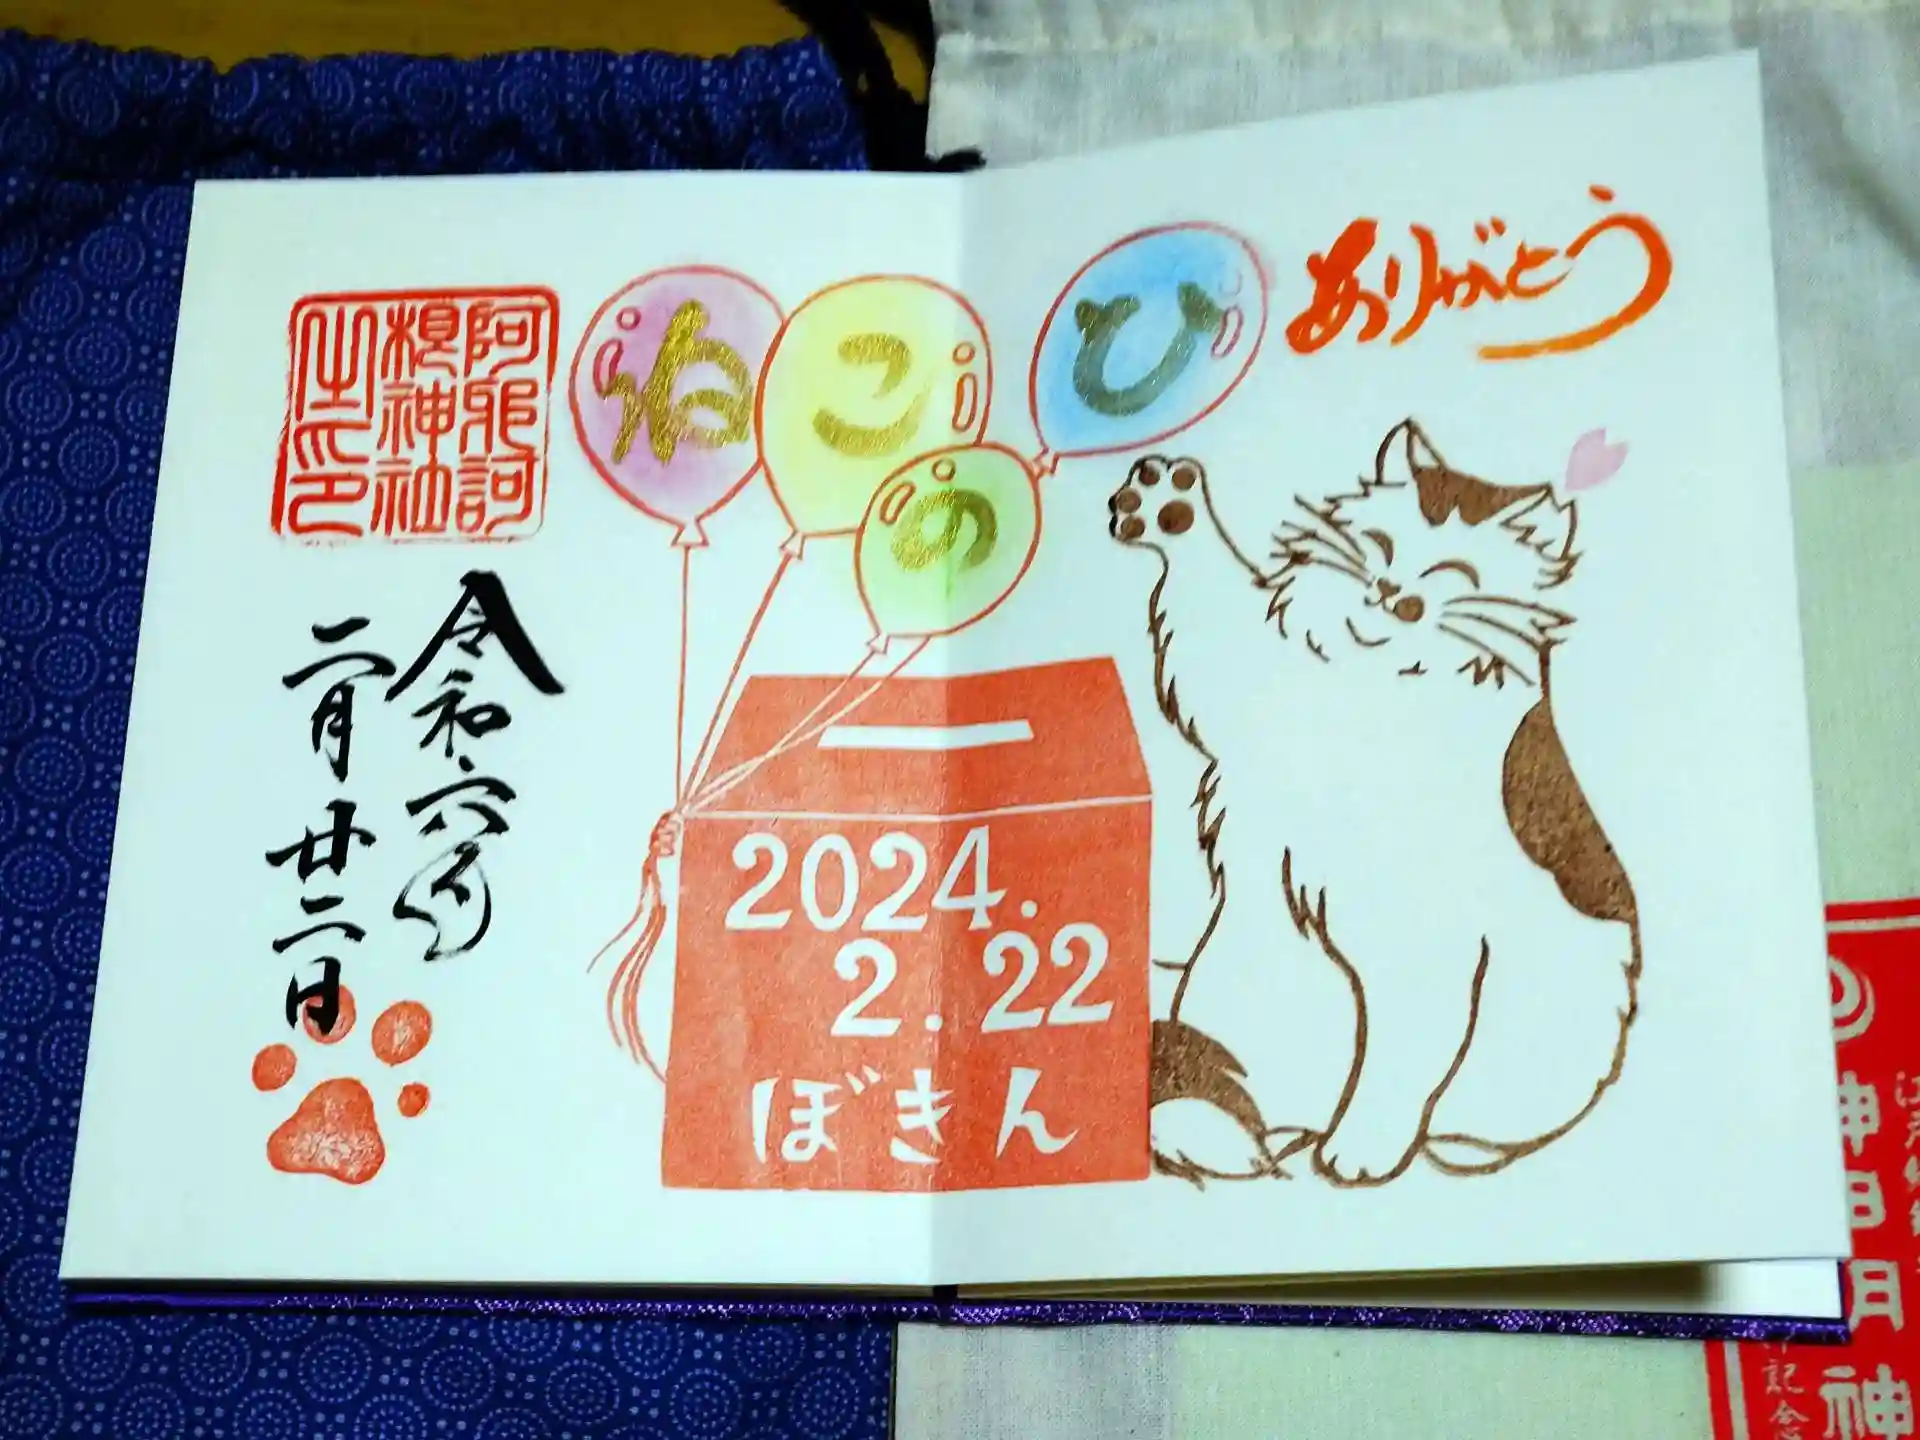 ありがとう
ねこのひ
2024.
2.22
ぼきん
阿邪訶
根神社
之印
令和六年
二月廿二日
神明神